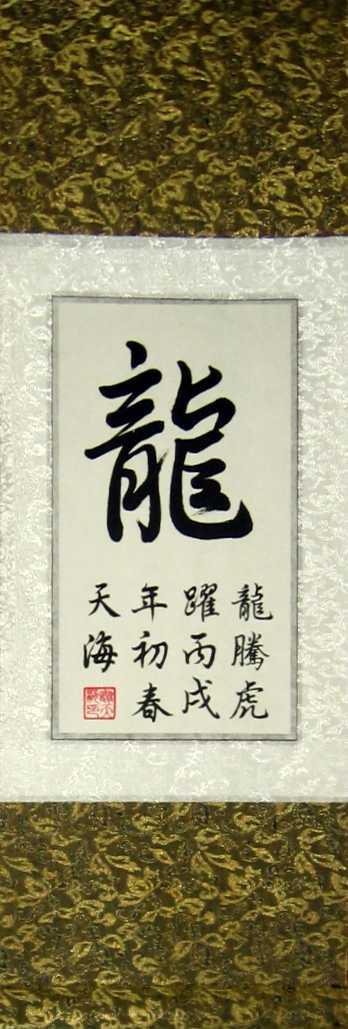 龍
龍騰虎
躍丙戌
年初春
天海